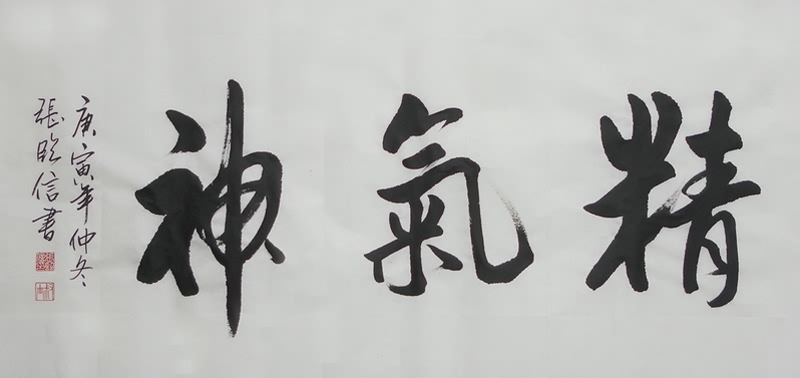 精氣神
庚寅年仲冬
張    信書